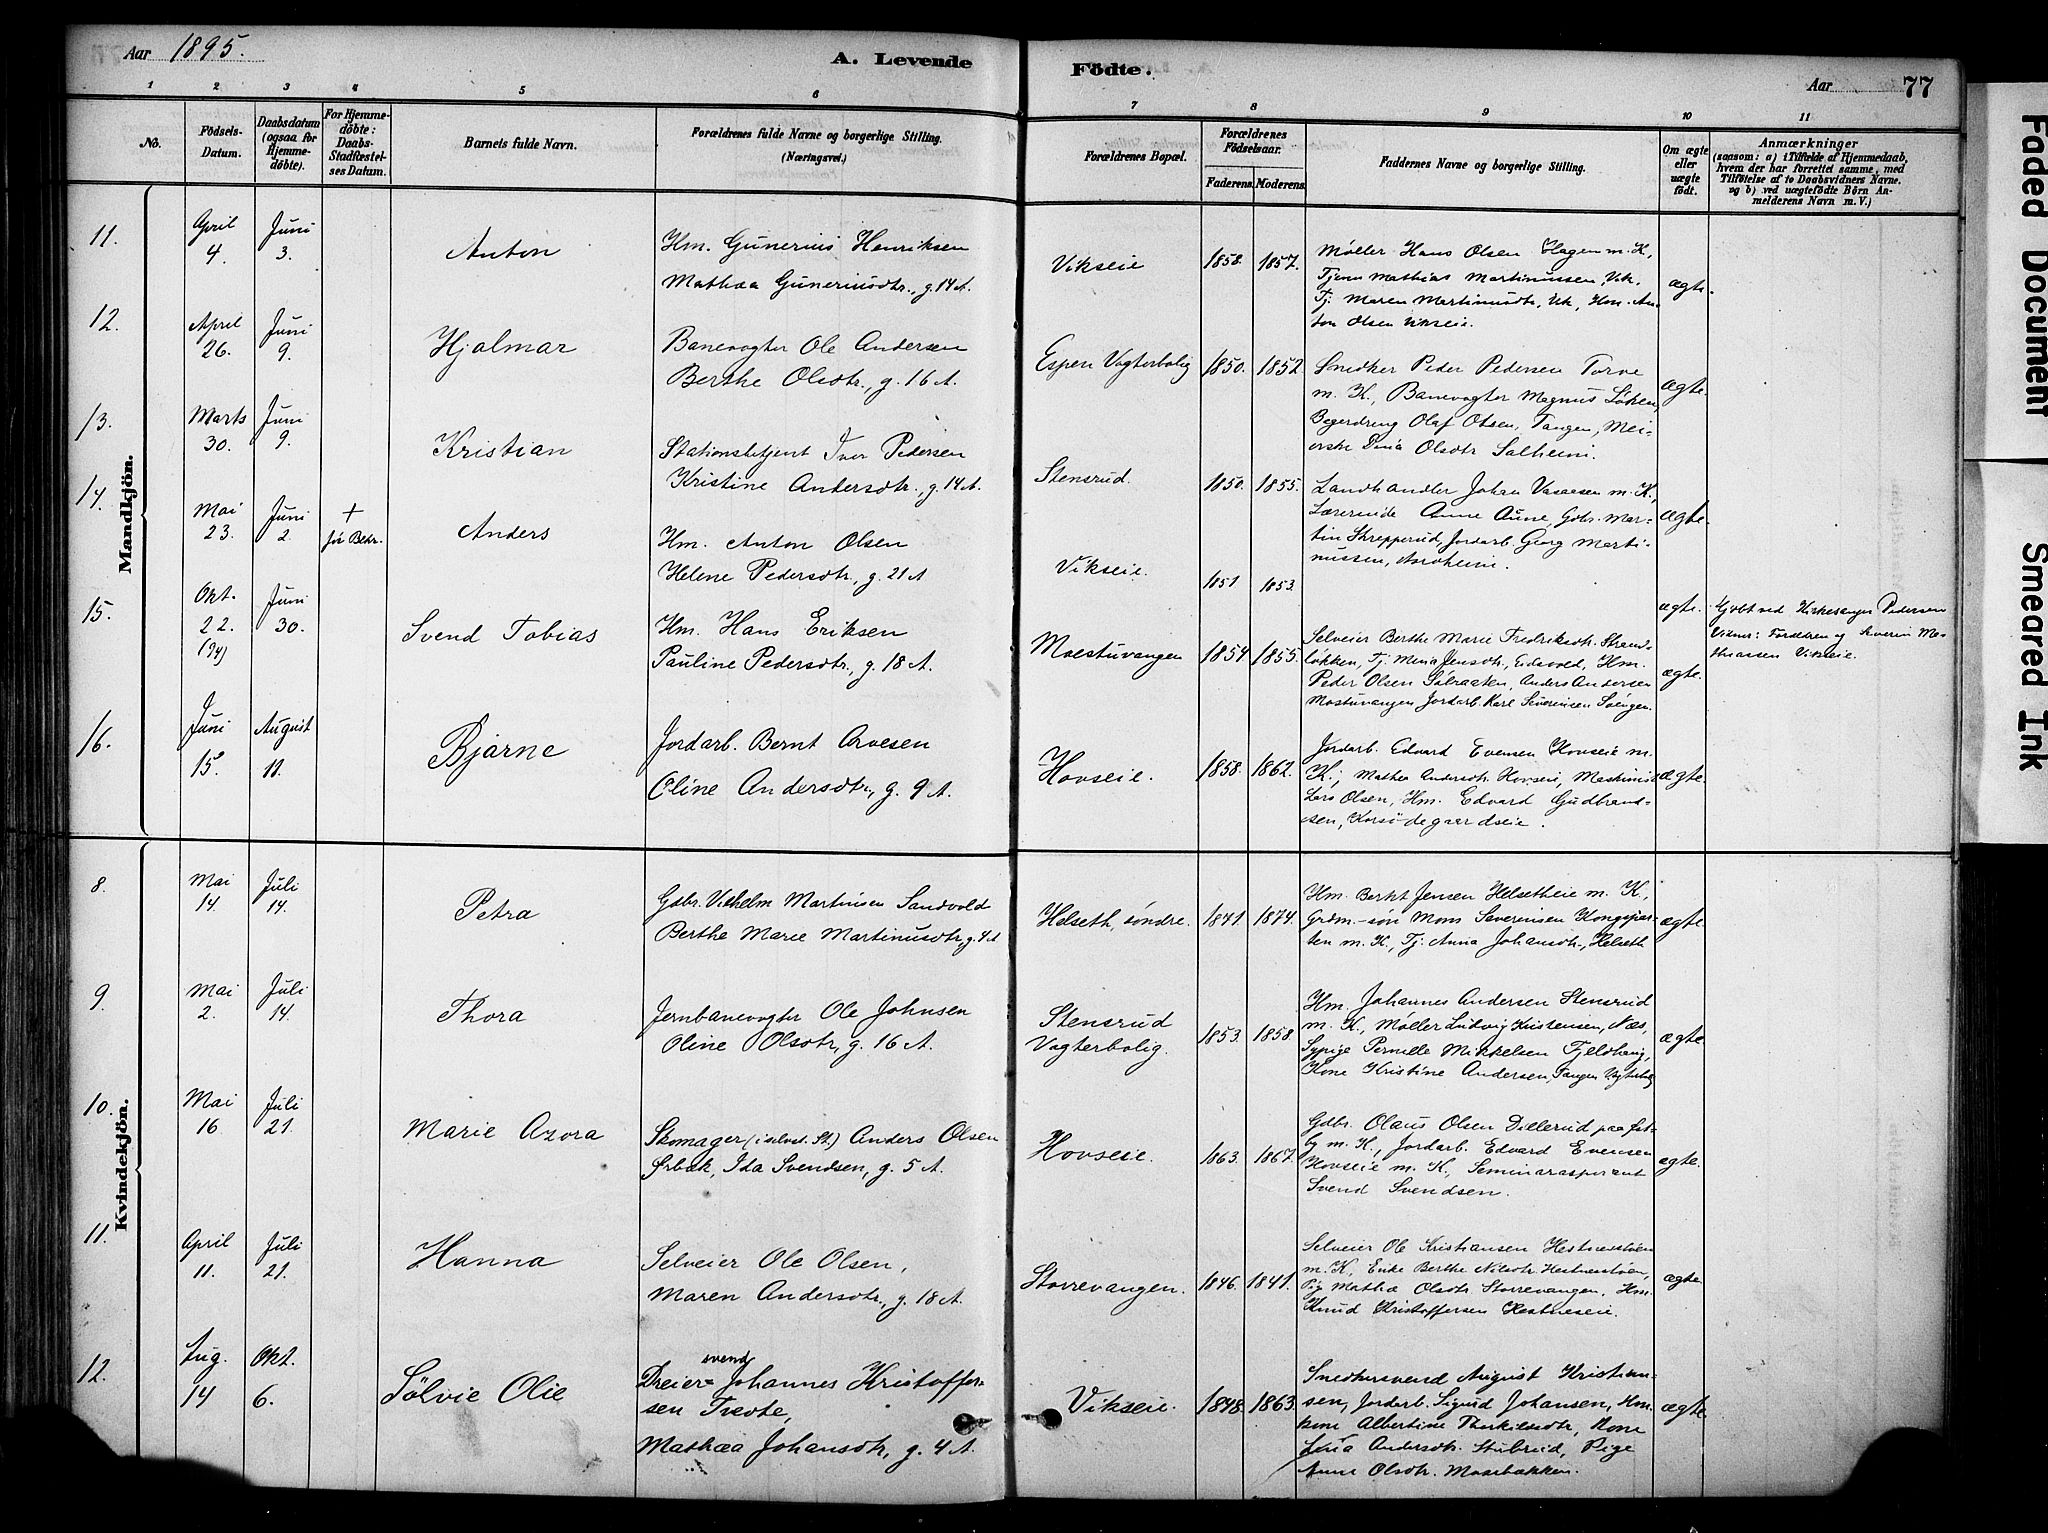 Aar 1895.
A. Levende
Födte.
Aar
77
1 2 3 4 5 6 7 8 9 10 11
No.
Födsels-Datum.
Daabsdatum (ogsaa for Hjemme-döbte).
For Hjemme-döbte: Daabs-Stadfæstel-ses Datum.
Barnets fulde Navn.
Forældrenes fulde Navne og borgerlige Stilling.
(Næringsvei.)
Forældrenes Bopæl.
Forældrenes Födselsaar.
Faderens. Moderens.
Faddernes Navne og borgerlige Stilling.
Om ægte eller uægte födt.
Anmærkninger
(saasom: a) i Tilfælde af Hjemmedaab,
hvem der har forrettet samme, med
Tilföielse af to Daabsvidners Navne,
og b) ved uægtefödte Börn An-
melderens Navn m. V.)
Mandkjön.
11.
April 4.
Juni 3.
Anton
Hm. Gunerius Henriksen
Mathea Guneriusdtr., g. 14 A.
Vikseie
1858. 1857.
Møller Hans Olsen Hagen m. K.,
Tjener Mathias Martinussen, Vik,
Tj. Maren Martinusdtr, Vik, Hm. An-
ton Olsen Vikseie.
ægte.
12.
April 26.
Juni 9.
Hjalmar
Banevogter Ole Andersen
Berthe Olsdtr., g. 16 A.
Espen Vogterbolig
1850. 1852
Snedker Peder Pedersen Torve
m. K., Banevogter Magnus Løken,
Olaf Olsen, Tangen, Mei-
erske Dina Olsdtr Solheim.
ægte.
13.
Marts 30.
Juni 9.
Kristian
Stationsbetjent Iver Pedersen
Kristine Andersdtr., g. 14 A.
Stensrud.
1850. 1855.
Landhandler Johan Vasaasen m. K.,
Lærerinde Anne Aune, Gdbr. Mar-
tin Skrepperud, Jordarb. Georg Marti-
nussen,
ægte.
14.
Mai 23.
Juni 2.
+ för Bekr.
Anders
Hm. Anton Olsen
Helene Pedersdtr., g. 21 A
Vikseie.
1851 1853.
ægte.
Gjöbt ved Kirkesanger Pedersen
Vidner: Forældren og Severin Ma-
thiassen Vikseie.
15.
Okt. 22. (94)
Juni 30.
Svend Tobias
Hm. Hans Eriksen
Pauline Pedersdtr., g. 18 A.
Moestuvangen
1854 1855.
Selveier Berthe Marie Fredriksdtr. Strand-
løkken, Tj. Mina Jensdtr., Eidsvold, Hm.
Peder Olsen Sølraaken, Anders Andersen
Mostuvangen Jordarb. Karl Severinsen Solengen.
ægte.
16.
Juni 15.
August 11.
Bjarne
Jordarb. Bernt Arvesen
Oline Andersdtr., g. 9 A.
Hovseie.
1858. 1862.
Jordarb. Edvard Evensen Hovseie m.
K., Mathea Andersdtr. Hovseie, Maskinist
Lars Olsen, Hm. Edvard Gudbrand-
sen, Korsödegaardseie.
ægte.
Kvindekjön.
8.
Mai 14.
Juli 14.
Petra
Gdbr. Vilhelm Martinsen Sandvold
Berthe Marie Martinusdtr., g. 4 A
Helseth, söndre.
1841. 1874.
Hm. Bernt Jensen Helsetheie m. K.,
Grdm.-søn Mons Severinsen Kongspar-
ten m. K., Tj. Anna Johansdtr., Helseth
ægte.
9.
Mai 2.
Juli 14.
Thora
Jernbanevogter Ole Johnsen
Oline Olsdtr., g. 16 A.
Stensrud Vogterbolig.
1853. 1858.
Hm. Johannes Andersen Stensrud
m. K., Møller Ludvig Kristensen, Næs,
Sypige Pernille Mikkelsen Fjeldhaug,
Kone Kristine Andersen, Tangen Vogterbolig
ægte.
10.
Mai 16.
Juli 21.
Marie Azora
Skomager (i selvst. St.) Anders Olsen
Ørbæk, Ida Svendsen, g. 5 A.
Hovseie.
1863. 1867.
Gdbr. Olaus Olsen Dillerud paa Set-
by m. K., Jordarb. Edvard Evensen
Hovseie m. K., Seminaraspirant
Svend Svendsen.
ægte.
11.
April 11.
Juli 21.
Hanna
Selveier Ole Olsen,
Maren Andersdtr., g. 18 A.
Storrevangen.
1846. 1841.
Selveier Ole Kristiansen Hestnesstöen
m. K., Enke Berthe Nilsdtr. Hestnesstöen,
Pig. Mathea Olsdtr. Storrevangen, Hm.
Knud Kristoffersen Hestneseie.
ægte
12.
Aug. 14
Okt. 6.
Sölvie Olie
Dreiersvend Johannes Kristoffer-
sen Tvedte,
Mathea Johansdtr, g. 4 A.
Vikseie.
1848. 1863.
Snedkersvend August Kristian-
sen, Jordarb. Sigurd Johansen, Hm.
kone Albertine Therkilsdtr, Kone
Lina Andersdtr. Stubrud, Pige
Anne Olsdtr. Moserbakken.
ægte.
Faded Document
Smeared Ink